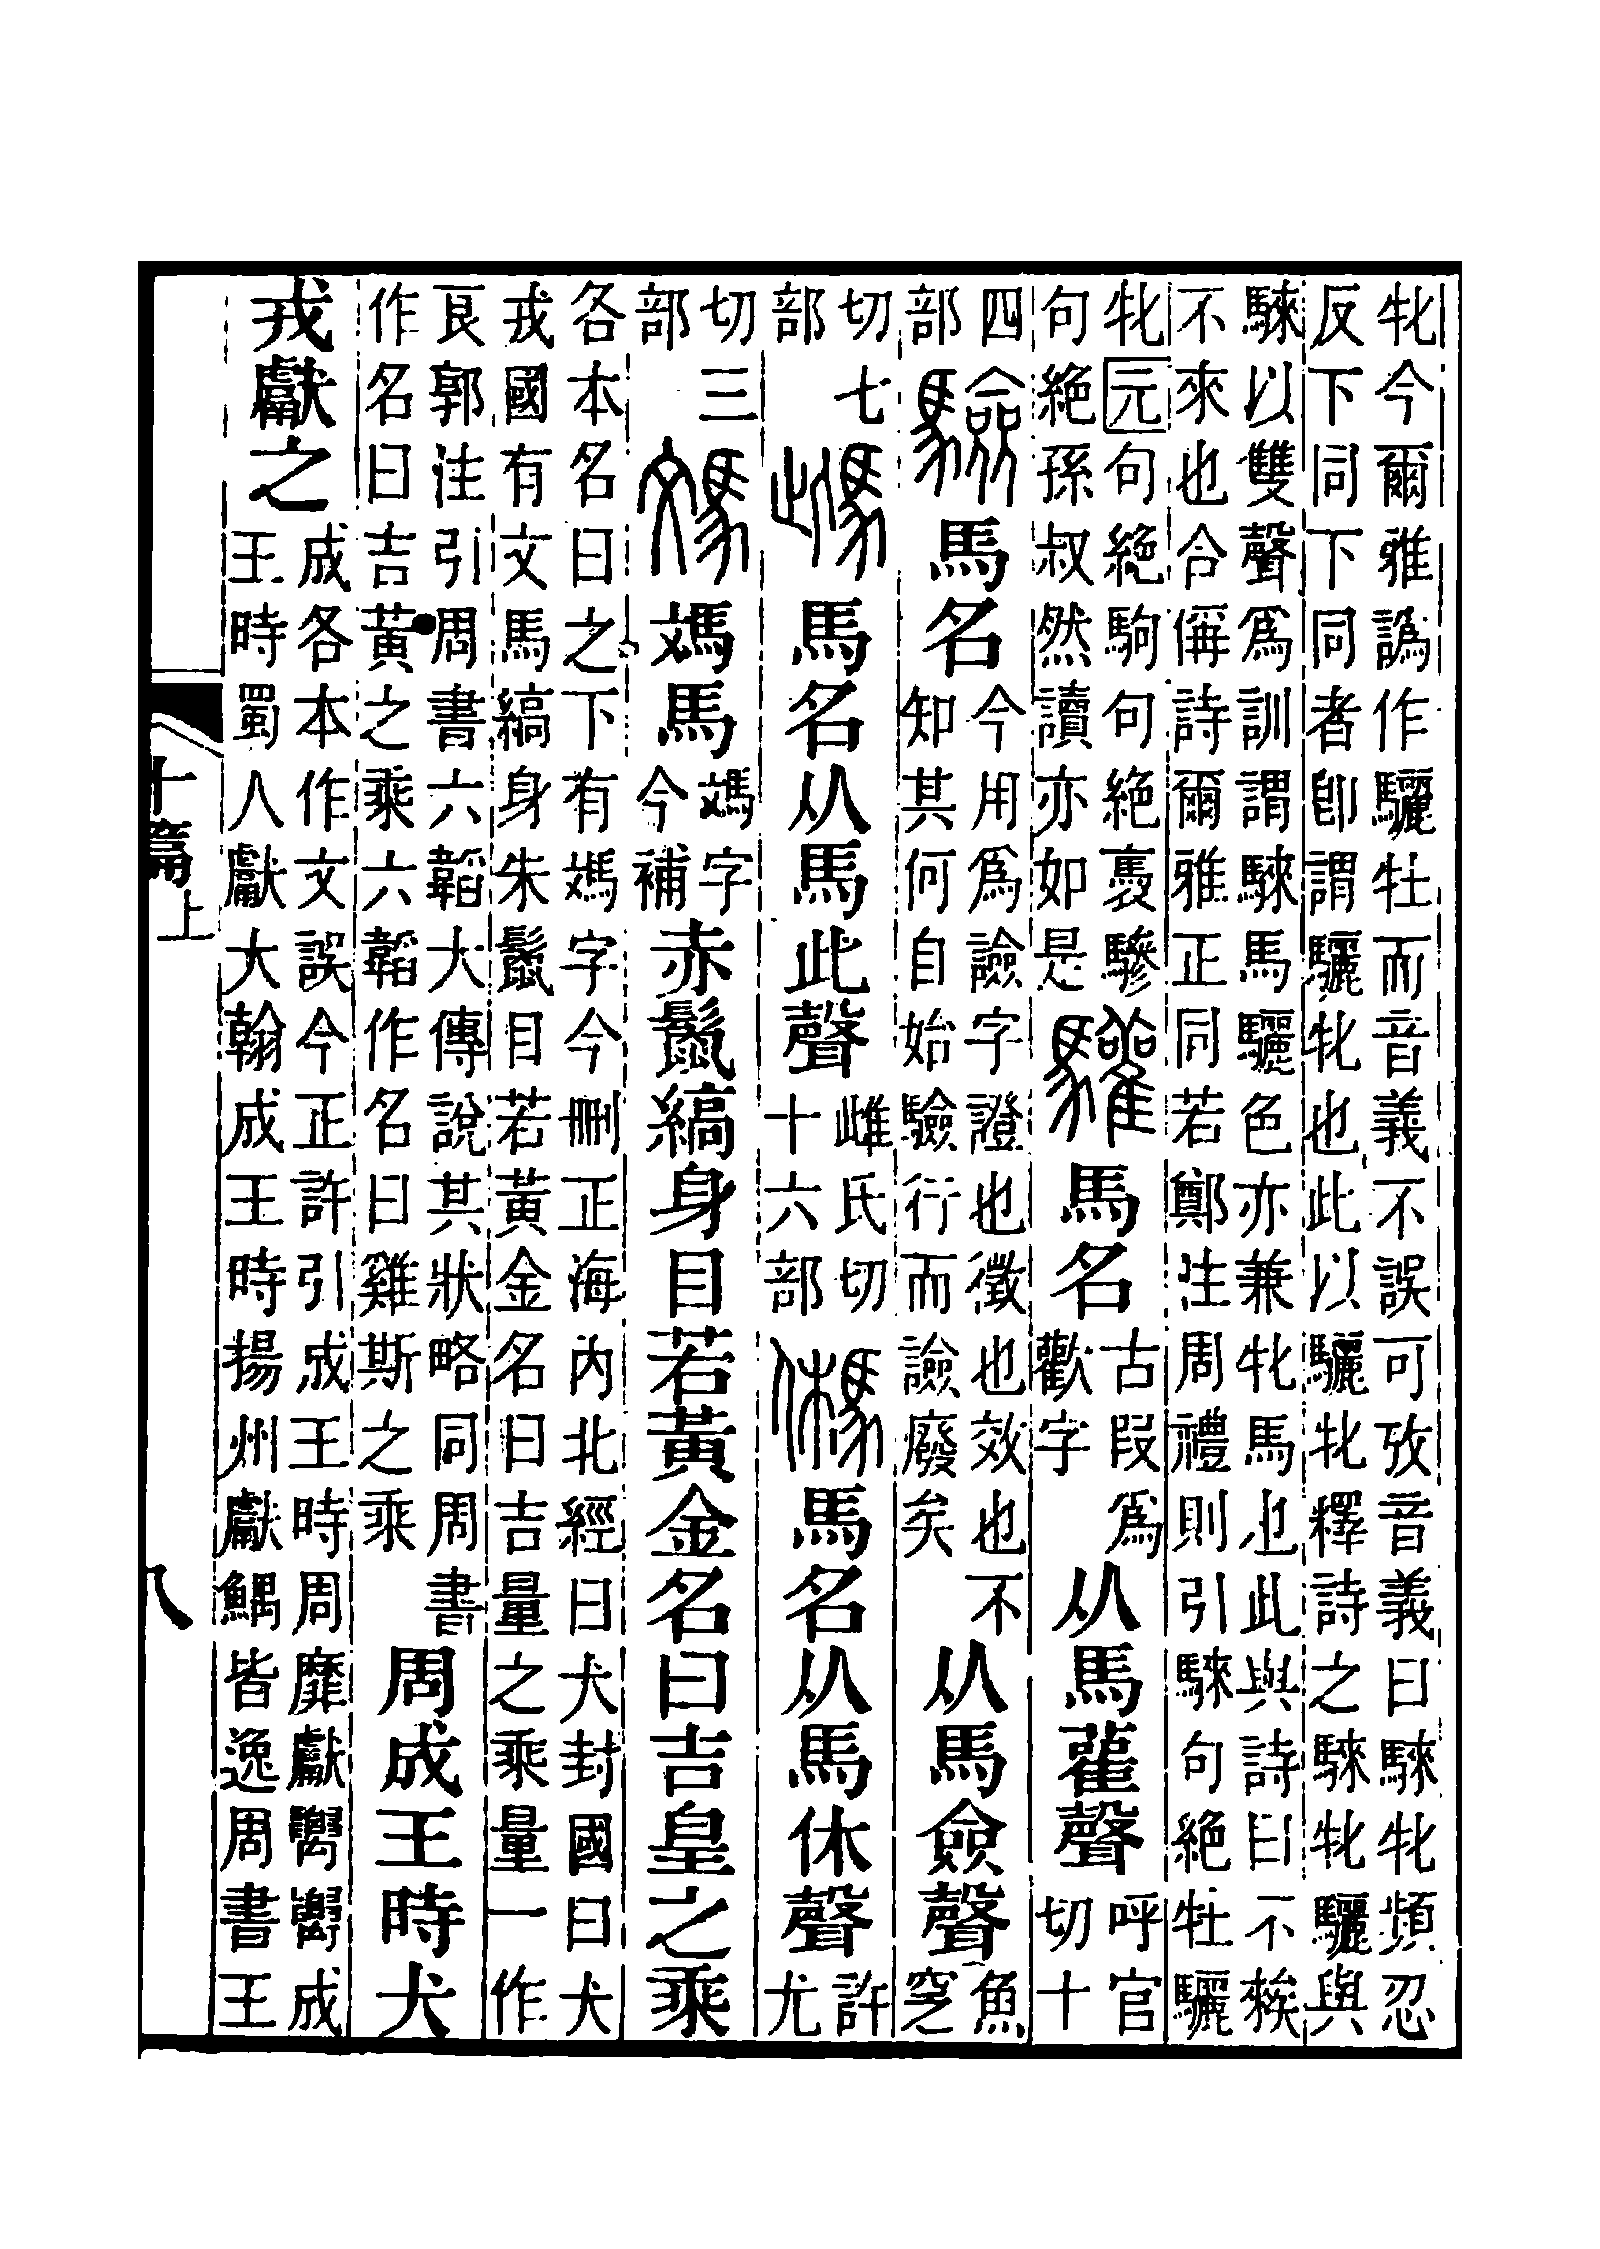 牝今爾雅譌作驪牡而音義不誤可攷音義曰騋牝頻忍
反下同下同者卽謂驪牝也此以驪牝釋詩之騋牝驪與
騋以雙聲爲訓謂騋馬驪色亦兼牝馬也此與詩曰不㯤
不來也合偁詩爾雅正同若鄭注周禮則引騋句絶牡驪
牝元句絶駒句絶褭驂
句絶孫叔然讀亦如是
驩馬名
古叚爲
歡字
从馬雚聲
呼官
切十
四
部
驗馬名
今用爲譣字證也徵也效也不
知其何自始驗行而譣廢矣
从馬僉聲
魚窆
切七
部
馬名从馬此聲
雌氏切
十六部
馬名从馬休聲
許尤
切三
部
馼馼馬
馼字
今補
赤鬣縞身目若黃金名曰吉皇之乘
各本名曰之下有馼字今刪正海內北經曰犬封國曰犬
戎國有文馬縞身朱鬣目若黃金名曰吉量之乘量一作
良郭注引周書六韜大傳說其狀略同周書
作名曰吉黃之乘六韜作名曰雞斯之乘
周成王時犬
戎獻之
成各本作文誤今正許引成王時周靡獻成
王時蜀人獻大翰成王時揚州獻鰅皆逸周書王
十篇上
八